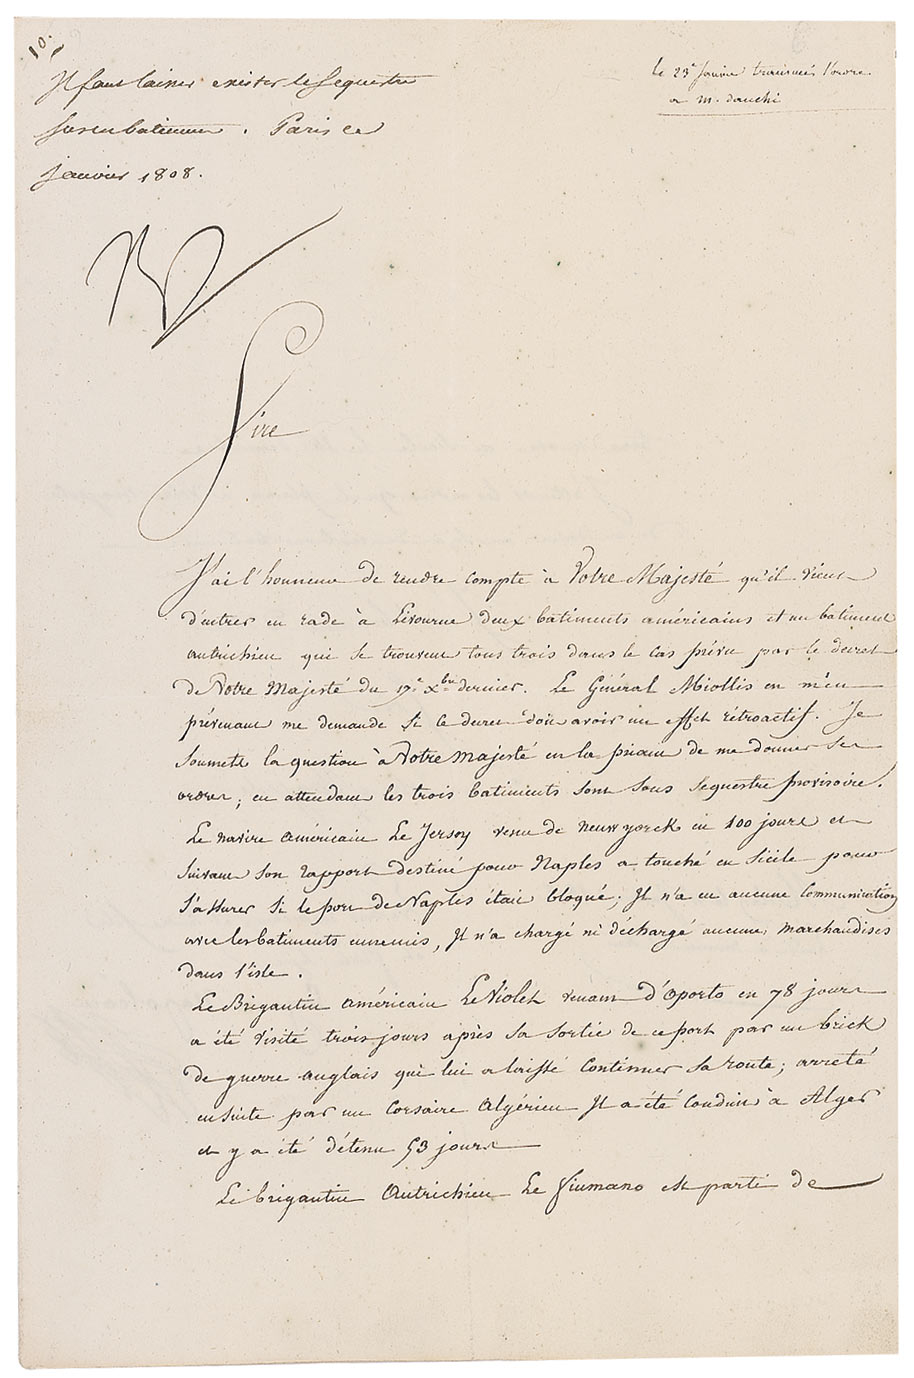 10.
Il faut laisser exister le Sequestre
sur ces batimens. Paris ce
janvier 1808.
le 23 Janvier transmis l'ordre
a m. dauchi
Sire
J'ai l'honneur de rendre compte à Votre Majesté qu'il vient
d'entrer en rade à Livourne deux bâtiments américains et un batiment
autrichien qui se trouvent tous trois dans le cas prévu par le decret
de Votre Majesté du 17.e Xbre dernier. Le Général Miollis en m'en
prévenant me demande si ce decret doit avoir un effet rétroactif. Je
soumets la question à Votre Majesté en la priant de me donner ses
ordres; en attendant les trois batiments sont sous Sequestre provisoire.
Le navire américain Le Jersey venu de Neuw yorck en 100 jours et
suivant son rapport destiné pour Naples a touché en Sicile pour
s'assurer si le port de Naples était bloqué; Il n'a eu aucune Communication
avec les batiments ennemis, Il n'a chargé ni déchargé aucunes marchandises
dans l'isle.
Le Brigantin américain Le Violet venant d'Oporto en 78 jours
a été visité trois jours après sa sortie de ce port par un brick
de guerre anglais qui lui a laissé continuer sa route; arrêté
ensuite par un Corsaire Algérien Il a été conduit à Alger
et y a été détenu 53 jours
Le brigantin Autrichien Le Fiumano est parti de